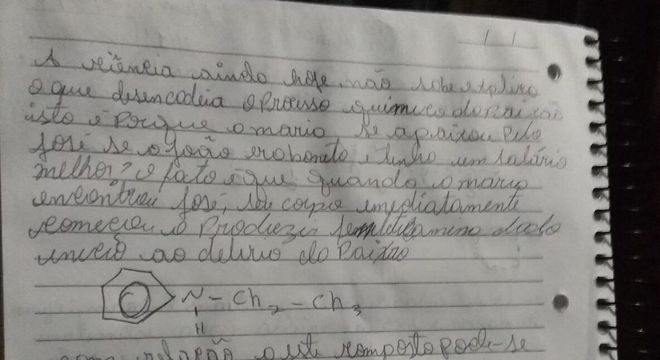 A ciência ainda hoje não sobe explica
o que desencadeia o Processo quimico do Paixão
isto é Porque o maria se apaixou Pelo
José se o João erobonito e tinho um salário
melhor? o fato e que quando o maria
encontrou José, seu corpo imediatamente
começou o Produzir dado
unicio ao delirio do Paixão
N - Ch2 - Ch3
H
com relação o este composto pode-se